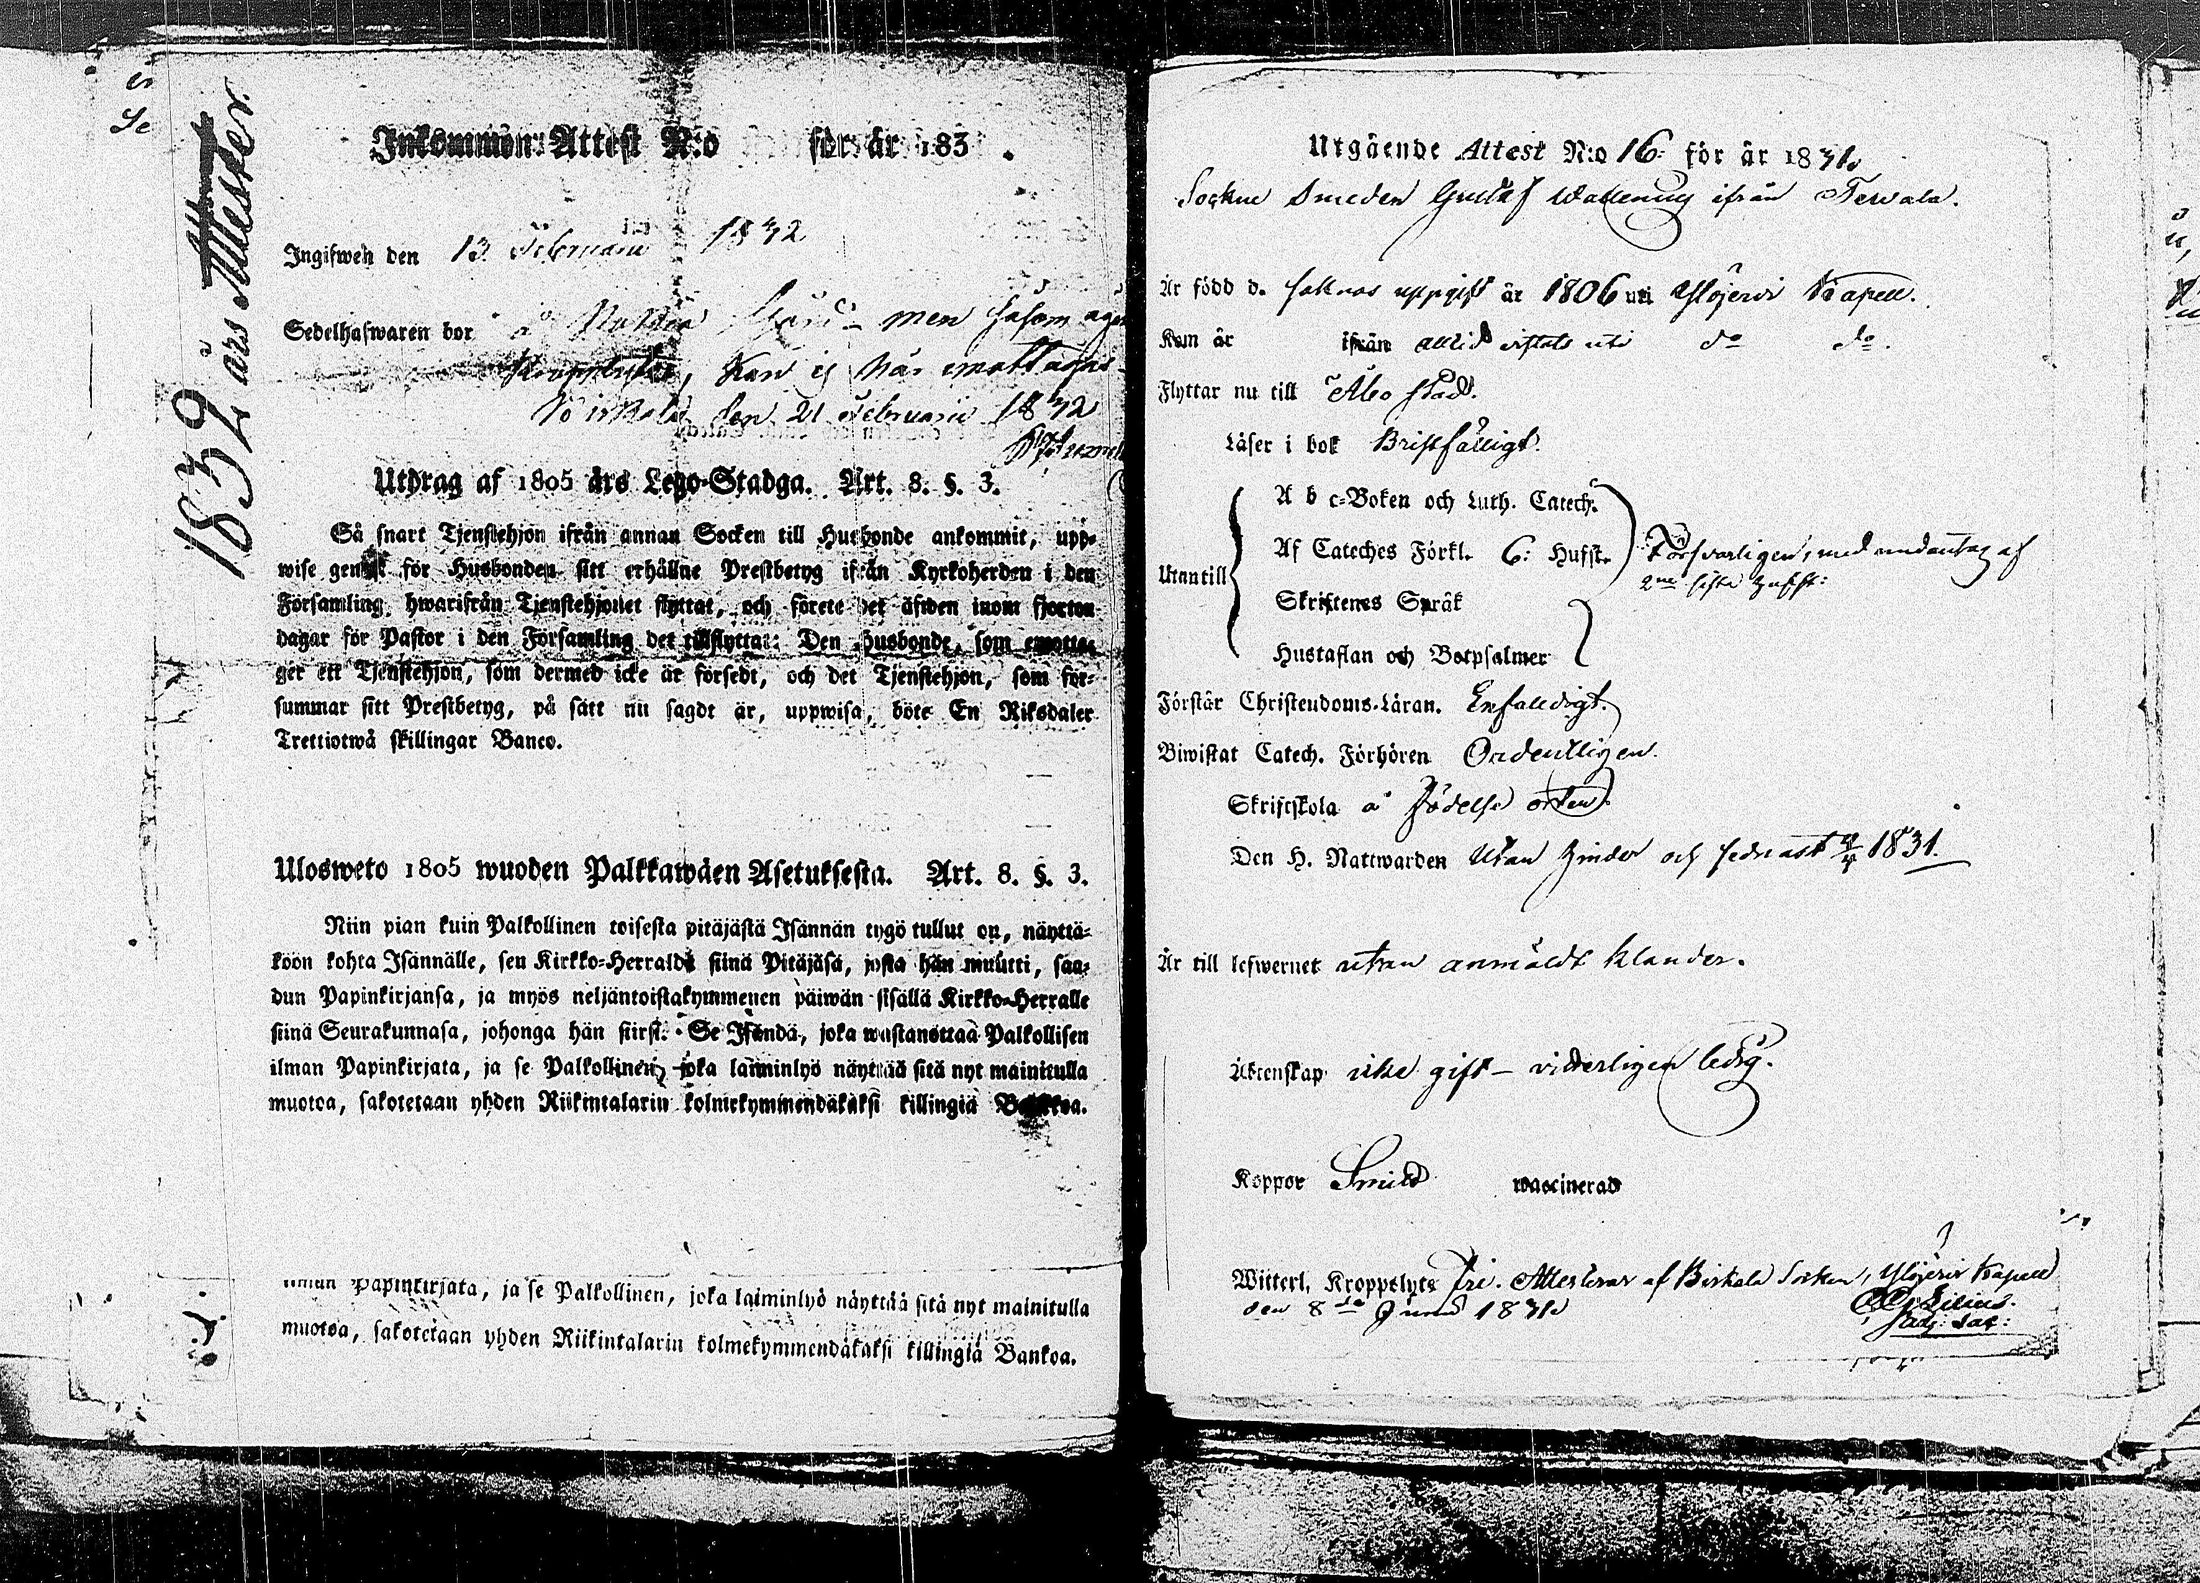 1832 års Attester.
Inkommen: Attest N:o för år 183 .
Ingifwen den 13 Februarii 1832
Sedelhafwaren bor å gård – men såsom äga
Kroppslyte, kan ej här emottagas
den 21 Februarii 1832
Utdrag af 1805 års Lego-Stadga. Art. 8. §. 3.
Så snart Tjenstehjon ifrån annan Socken till Husbonde ankommit, upp-
wise genast för Husbonden sitt erhållne Prestbetyg ifrån Kyrkoherden i den
Församling, hwarifrån Tjenstehjonet flyttat, och förete det äfwen inom fjorton
dagar för Pastor i den Församling det tillflyttat: Den Husbonde, som emotta-
ger ett Tjenstehjon, som dermed icke är försedt, och det Tjenstehjon, som för-
summar sitt Prestbetyg, på sätt nu sagdt är, uppwisa, böte En Riksdaler
Trettiotwå skillingar Banco.
Ulosweto 1805 wuoden Palkkawäen Asetuksesta. Art. 8. §. 3.
Niin pian kuin Palkollinen toisesta pitäjästä Isännän tygö tullut on, näyttä-
köön kohta Isännälle, sen Kirkko-Herralda siinä Pitäjäsä, josta hän muutti, saa-
dun Papinkirjansa, ja myös neljäntoistakymmenen päiwän sisällä Kirkko-Herralle
siinä Seurakunnasa, johonga hän siirsi. Se Isändä, joka wastanottaa Palkollisen
ilman Papinkirjata, ja se Palkollinen, joka laiminlyö näyttää sitä nyt mainitulla
muotoa, sakotetaan yhden Riikintalarin kolmekymmendäkaksi killingiä Bankoa.
ilman Papinkirjata, ja se Palkollinen, joka laiminlyö näyttää sitä nyt mainitulla
muotoa, sakotetaan yhden Riikintalarin kolmekymmendäkaksi killingiä Bankoa.
Utgående Attest N:o 16: för år 1831.
Sockne Smeden Gustaf Wallenius ifrån Terwala.
Är född d. saknas uppgift år 1806 uti Ylöjervi Kapell.
Kom år ifrån alltid vistats uti do do.
Flyttar nu till Åbo stad.
Läser i bok Bristfälligt.
A b c-Boken och Luth. Catech.
Af Cateches Förkl. 6: Hufst. Försvarligen, med undantag af
2ne sista Hufst:
Utantill
Skriftenes Språk
Hustaflan och Botpsalmer
Förstår Christendoms-Läran. Enfaldigt.
Biwistat Catech. Förhören Ordentligen.
Skriftskola å födelse orten.
Den H. Nattwarden Utan hinder och sednast 1831.
Är till lefwernet utan anmäldt klander.
Äktenskap icke gift – vitterligen ledig.
Koppor Smitt waccinerad
Witterl. Kroppslyte Fri. Attesterar af Birkala Socken, Ylöjervi Kapell
den 8de Junii 1831.
Lilius.
Adj: Sac: